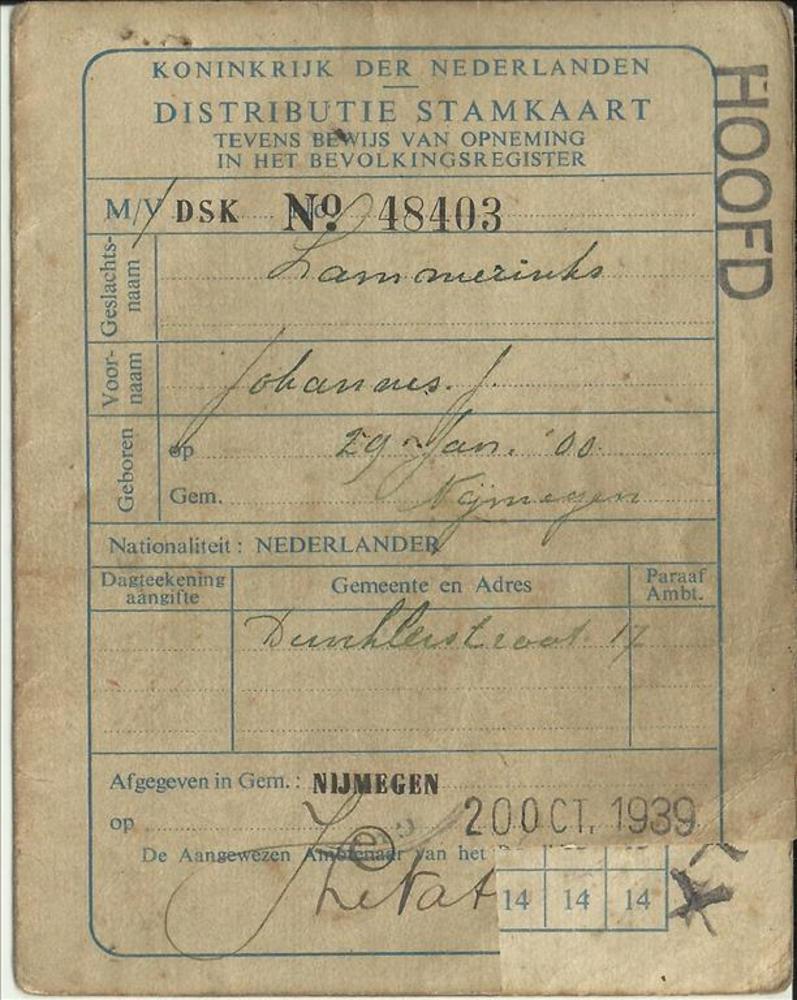 KONINKRIJK DER NEDERLANDEN
DISTRIBUTIE STAMKAART
TEVENS BEWIJS VAN OPNEMING
IN HET BEVOLKINGSREGISTER
HOOFD
M/V DSK No 48403
Geslachts-
naam
Lammerinks
Voor-
naam
Johannes. J.
Geboren
op 29 Jan. '00
Gem. Nijmegen
Nationaliteit : NEDERLANDER
Dagteekening
aangifte
Gemeente en Adres
Paraaf
Ambt.
17
Afgegeven in Gem. : NIJMEGEN
op 20 OCT. 1939
De Aangewezen Ambtenaar van het
14 14 14